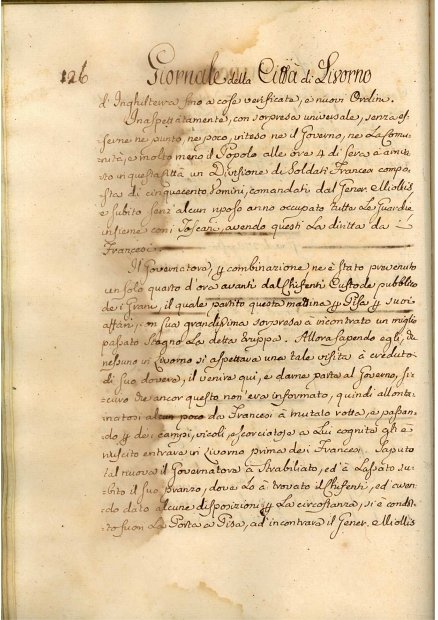 126 Giornale della Città di Livorno
d'Inghilterra fino a cose verificate, e nuovi Ordini.
Inaspettatamente, con sorpresa universale, senza es
serne ne punto, ne poco, inteso ne il Governo, ne La Comu
nità, e molto meno il Popolo alle ore 4 di sera è arriva
to in questa Città un Divisione di Soldati Francesi compo
sta di cinquecento Uomini, comandati dal Gener. Miollis
e subito senz'alcun riposo anno occupato tutte Le Guardie
insieme coni Toscani, avendo questi La diritta da
Francesi.
Il Governatore, p combinazione ne è stato prevenuto
un solo quarto d'ora avanti dal Chifenti Custode pubblico
de i Grani, il quale partito questa matina p Pisa p suoi
affari, con sua grandissima sorpresa à incontrato un miglio
passato Stagno La detta truppa. Allora sapendo egli, che
nessuno in Livorno si aspettava una tale visita à creduto
di suo dovere, il venire qui, e darne parte al Governo, si
curo che ancor questo non era informato, quindi allonta
natosi alcun poco da Francesi à mutato rotta, e passan
do p de i campi, vicoli, e scorciatoje a Lui cognite gli è
riuscito entrare in Livorno prima dei Francesi. Saputo
tal nuova il Governatore à Strabiliato, ed à Lassato su
bito il suo pranzo, dove Lo à trovato il Chifenti, ed aven
do dato alcune disposizioni p La circostanza, si è condot
to fuori La Porta a Pisa, ad'incontrare il Gener. Miollis